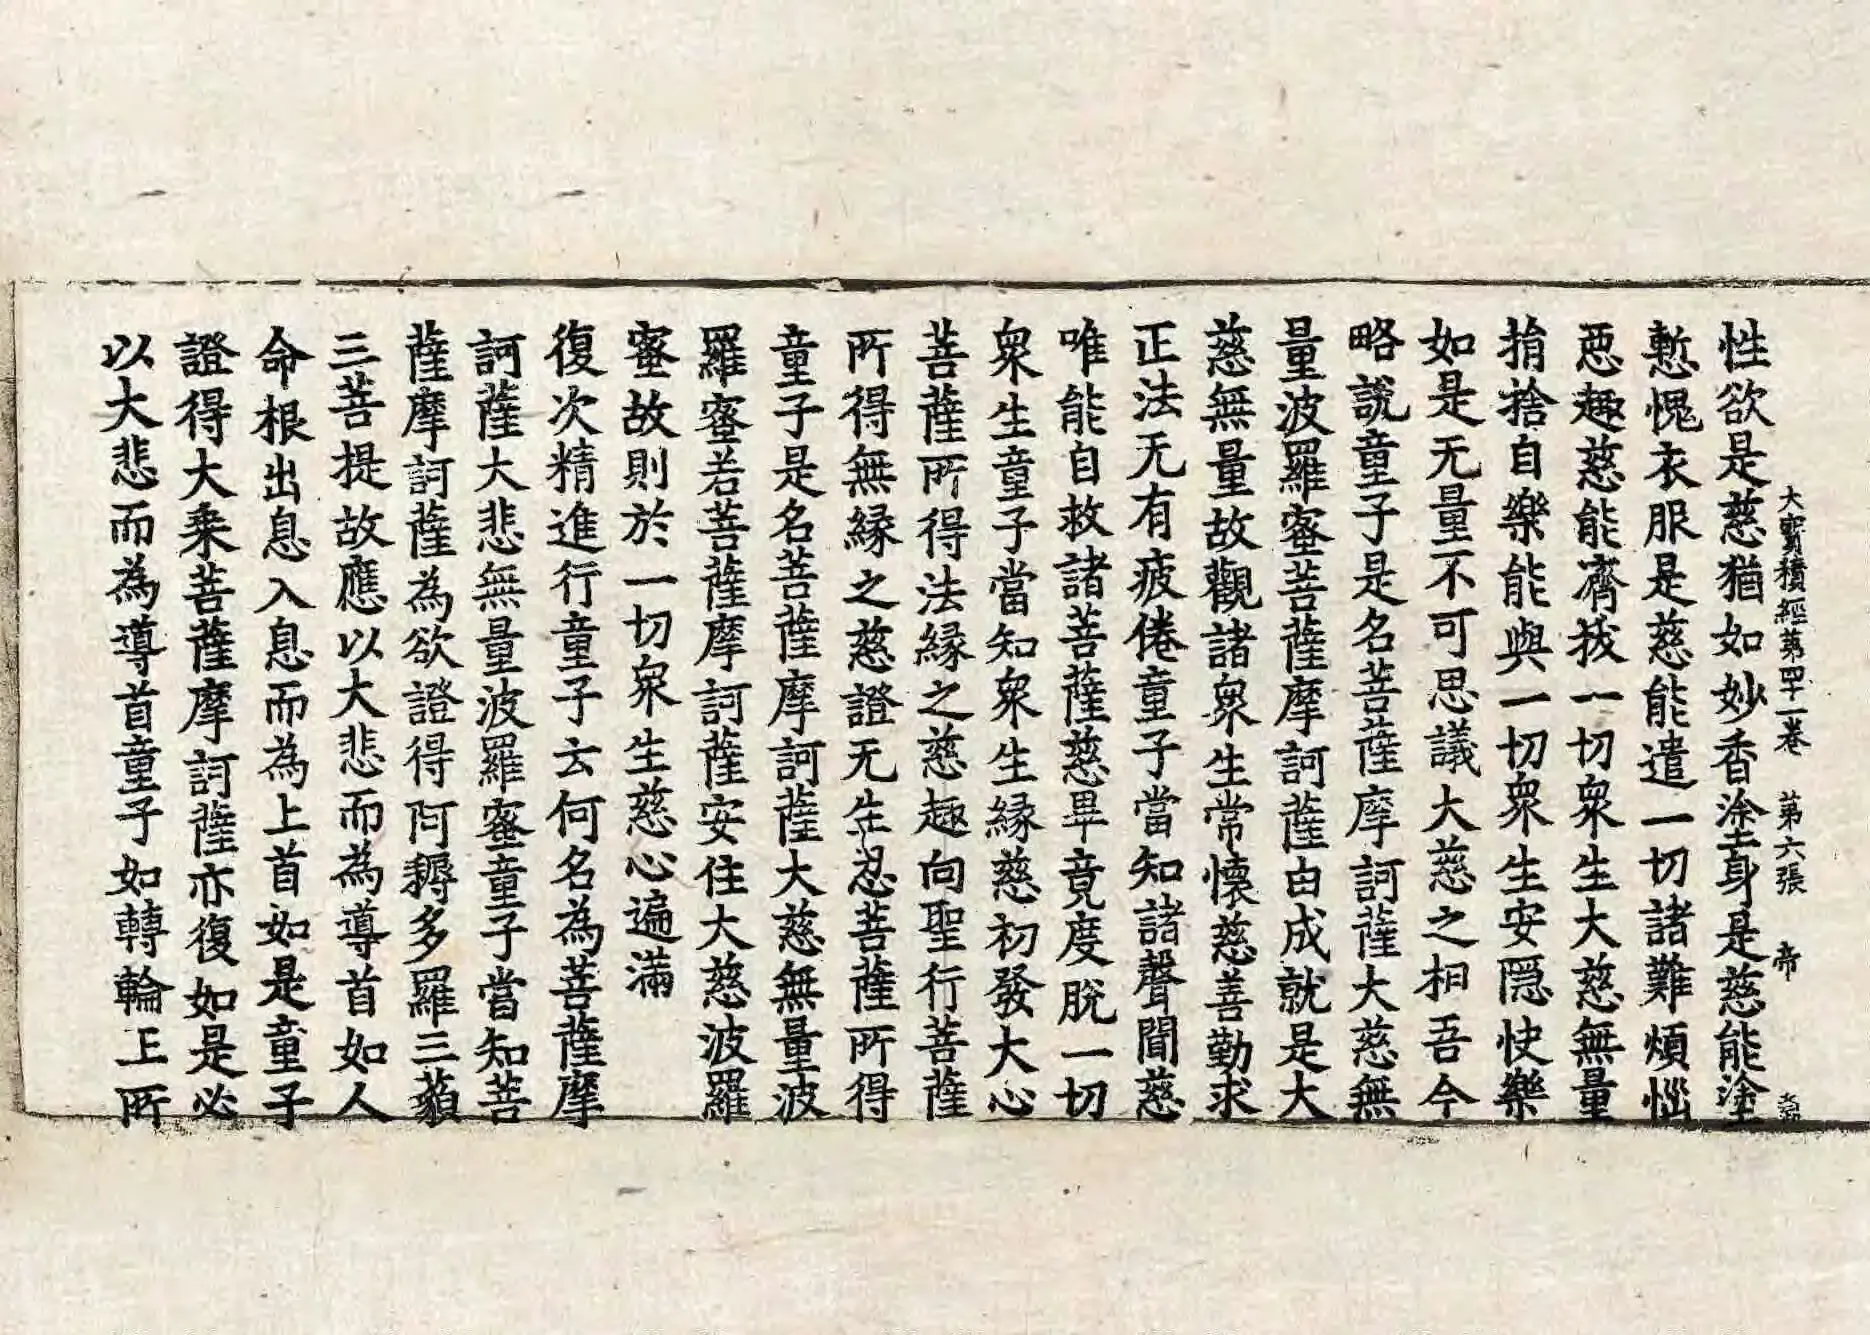 大寶積經第四十一卷　第六張　帝
性欲是慈猶如妙香塗身是慈能塗
慙愧衣服是慈能遣一切諸難煩惱
惡趣慈能濟拔一切衆生大慈無量
捐捨自樂能與一切衆生安隱快樂
如是无量不可思議大慈之相吾今
略說童子是名菩薩摩訶薩大慈無
量波羅蜜菩薩摩訶薩由成就是大
慈無量故觀諸衆生常懷慈善勤求
正法无有疲倦童子當知諸聲聞慈
唯能自救諸菩薩慈畢竟度脫一切
衆生童子當知衆生緣慈初發大心
菩薩所得法緣之慈趣向聖行菩薩
所得無緣之慈證无生忍菩薩所得
童子是名菩薩摩訶薩大慈無量波
羅蜜若菩薩摩訶薩安住大慈波羅
蜜故則於一切衆生慈心遍滿
復次精進行童子云何名為菩薩摩
訶薩大悲無量波羅蜜童子當知菩
薩摩訶薩為欲證得阿耨多羅三藐
三菩提故應以大悲而為導首如人
命根出息入息而為上首如是童子
證得大乘菩薩摩訶薩亦復如是必
以大悲而為導首童子如轉輪王所